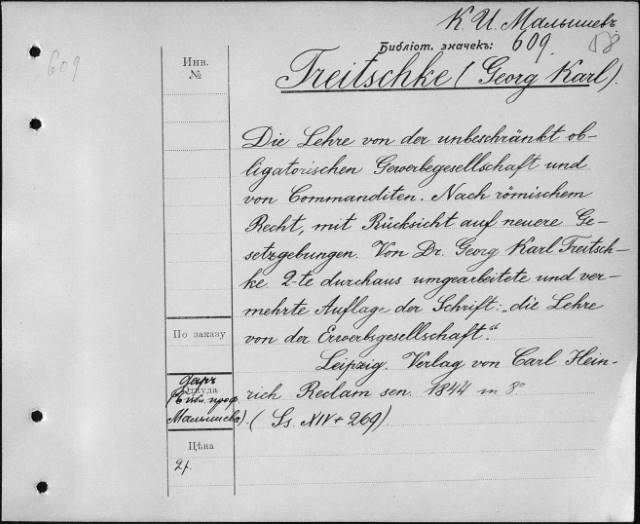 К. И. Малышевъ
Библіот. значекъ: 609.
609
Инв.
№
Treitschke (Georg Karl).
Die Lehre von der unbeschränkt ob-
ligatorischen Gewerbegesellschaft und
von Commanditen. Nach römischem
Recht, mit Rücksicht auf neuere Ge-
setzgebungen. Von Dr. Georg Karl Treitsch-
ke 2-te durchaus umgearbeitete und ver-
mehrte Auflage der Schrift: „die Lehre
von der Erwerbsgesellschaft."
По заказу
Leipzig. Verlag von Carl Hein-
rich Reclam sen. 1844 in 8°
(Ss. XIV + 269).
даръ
Откуда
проф.
Малышева)
Цѣна
2 р.